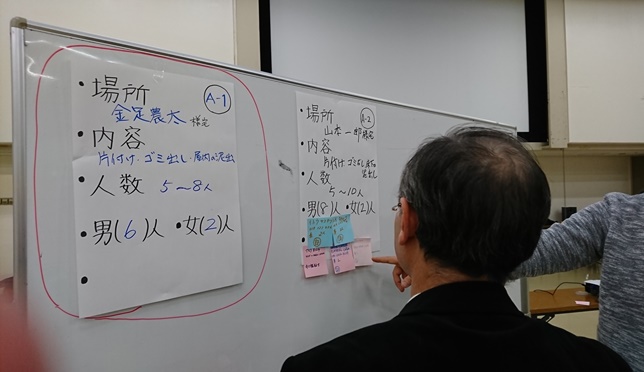 A-1
• 場所
金足農太 様宅
• 内容
片付け・ゴミ出し・屋内の泥出し
• 人数 5～8人
• 男(6)人 • 女(2)人
A-2
• 場所
山本一郎様宅
• 内容
片付け ゴミ出し
泥出し
• 人数
5～10人
• 男(8)人 • 女(2)人